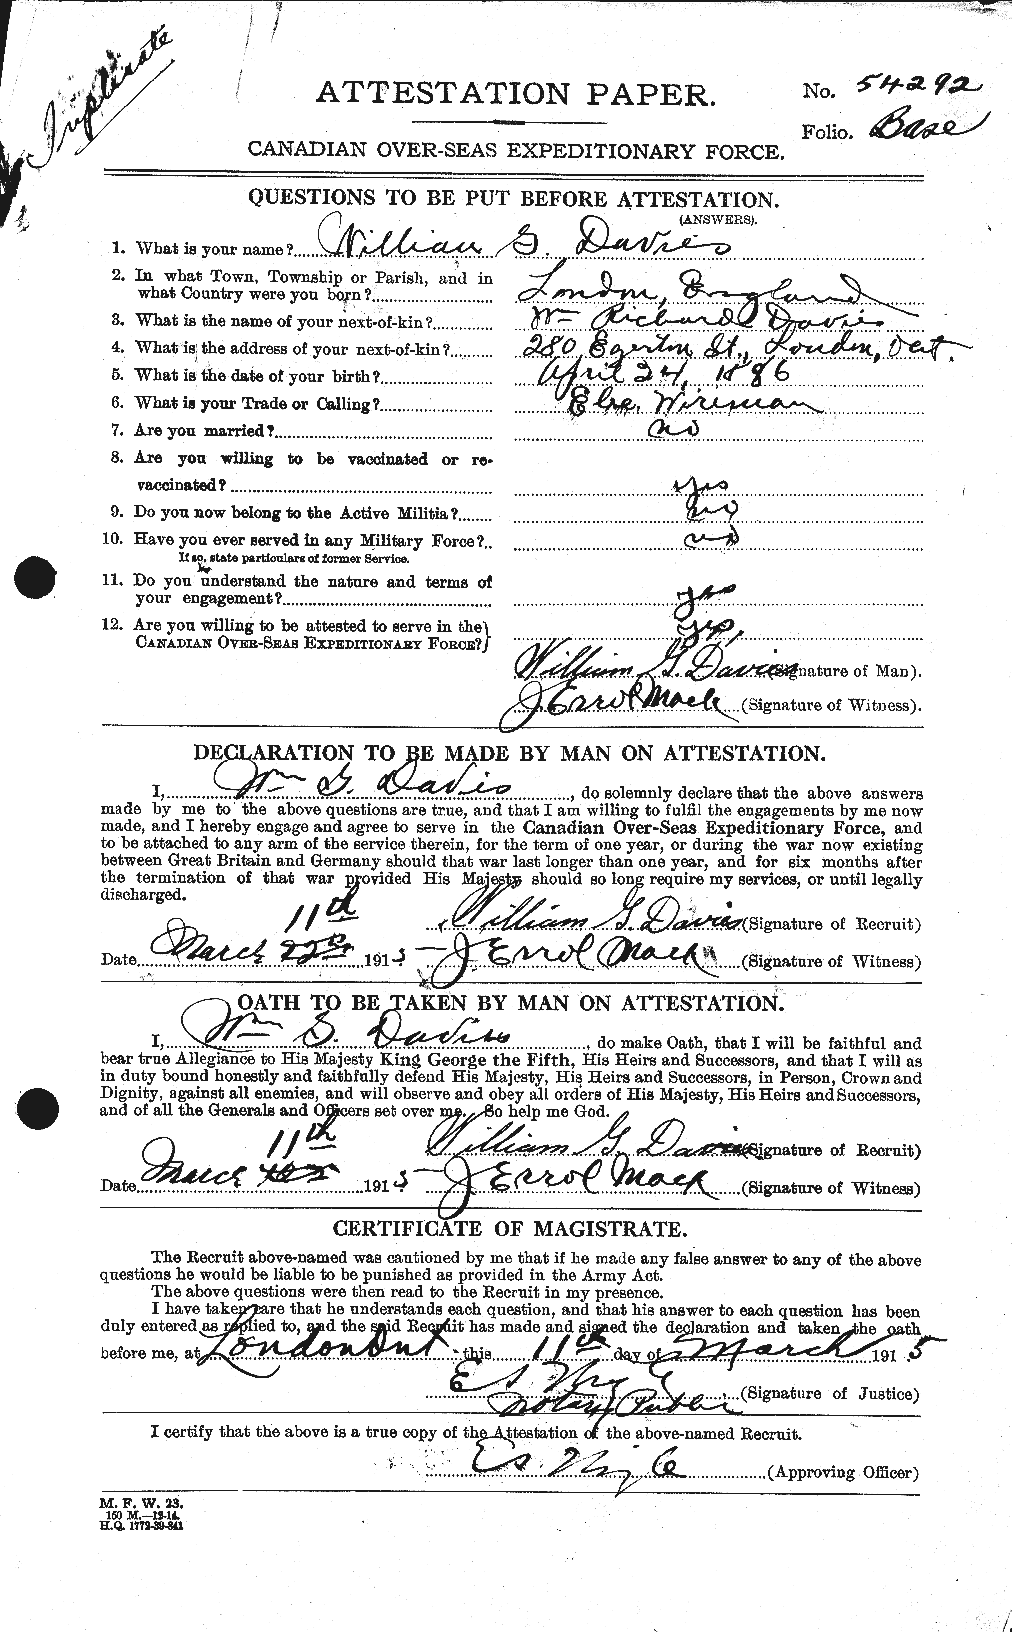 Triplicate
ATTESTATION PAPER.
No. 54292
Folio. Base
CANADIAN OVER-SEAS EXPEDITIONARY FORCE.
QUESTIONS TO BE PUT BEFORE ATTESTATION.
(ANSWERS).
1. What is your name? William G. Davies
2. In what Town, Township or Parish, and in
what Country were you born? London, England
3. What is the name of your next-of-kin? Wm Richard Davies
4. What is the address of your next-of-kin? 280 Egerton St., London, Ont.
5. What is the date of your birth? April 24, 1886
6. What is your Trade or Calling? Elec. Wireman
7. Are you married? no
8. Are you willing to be vaccinated or re-
vaccinated? yes
9. Do you now belong to the Active Militia? no
10. Have you ever served in any Military Force? no
If so, state particulars of former Service.
11. Do you understand the nature and terms of
your engagement? yes
12. Are you willing to be attested to serve in the
CANADIAN OVER-SEAS EXPEDITIONARY FORCE? yes,
William G. Davies (Signature of Man).
J Errol Mack (Signature of Witness).
DECLARATION TO BE MADE BY MAN ON ATTESTATION.
I, Wm G. Davis, do solemnly declare that the above answers
made by me to the above questions are true, and that I am willing to fulfil the engagements by me now
made, and I hereby engage and agree to serve in the Canadian Over-Seas Expeditionary Force, and
to be attached to any arm of the service therein, for the term of one year, or during the war now existing
between Great Britain and Germany should that war last longer than one year, and for six months after
the termination of that war provided His Majesty should so long require my services, or until legally
discharged.
11th William G. Davies (Signature of Recruit)
Date March 1915 J Errol Mack (Signature of Witness)
OATH TO BE TAKEN BY MAN ON ATTESTATION.
I, Wm G. Davies, do make Oath, that I will be faithful and
bear true Allegiance to His Majesty King George the Fifth, His Heirs and Successors, and that I will as
in duty bound honestly and faithfully defend His Majesty, His Heirs and Successors, in Person, Crown and
Dignity, against all enemies, and will observe and obey all orders of His Majesty, His Heirs and Successors,
and of all the Generals and Officers set over me. So help me God.
11th William G. Davies (Signature of Recruit)
Date March 1915 J Errol Mack (Signature of Witness)
CERTIFICATE OF MAGISTRATE.
The Recruit above-named was cautioned by me that if he made any false answer to any of the above
questions he would be liable to be punished as provided in the Army Act.
The above questions were then read to the Recruit in my presence.
I have taken care that he understands each question, and that his answer to each question has been
duly entered as replied to, and the said Recruit has made and signed the declaration and taken the oath
before me, at London Ont this 11th day of March 1915
E S (Signature of Justice)
Notary Public
I certify that the above is a true copy of the Attestation of the above-named Recruit.
E S (Approving Officer)
M. F. W. 23.
150 M.—12-14.
H.Q. 1772-39-841